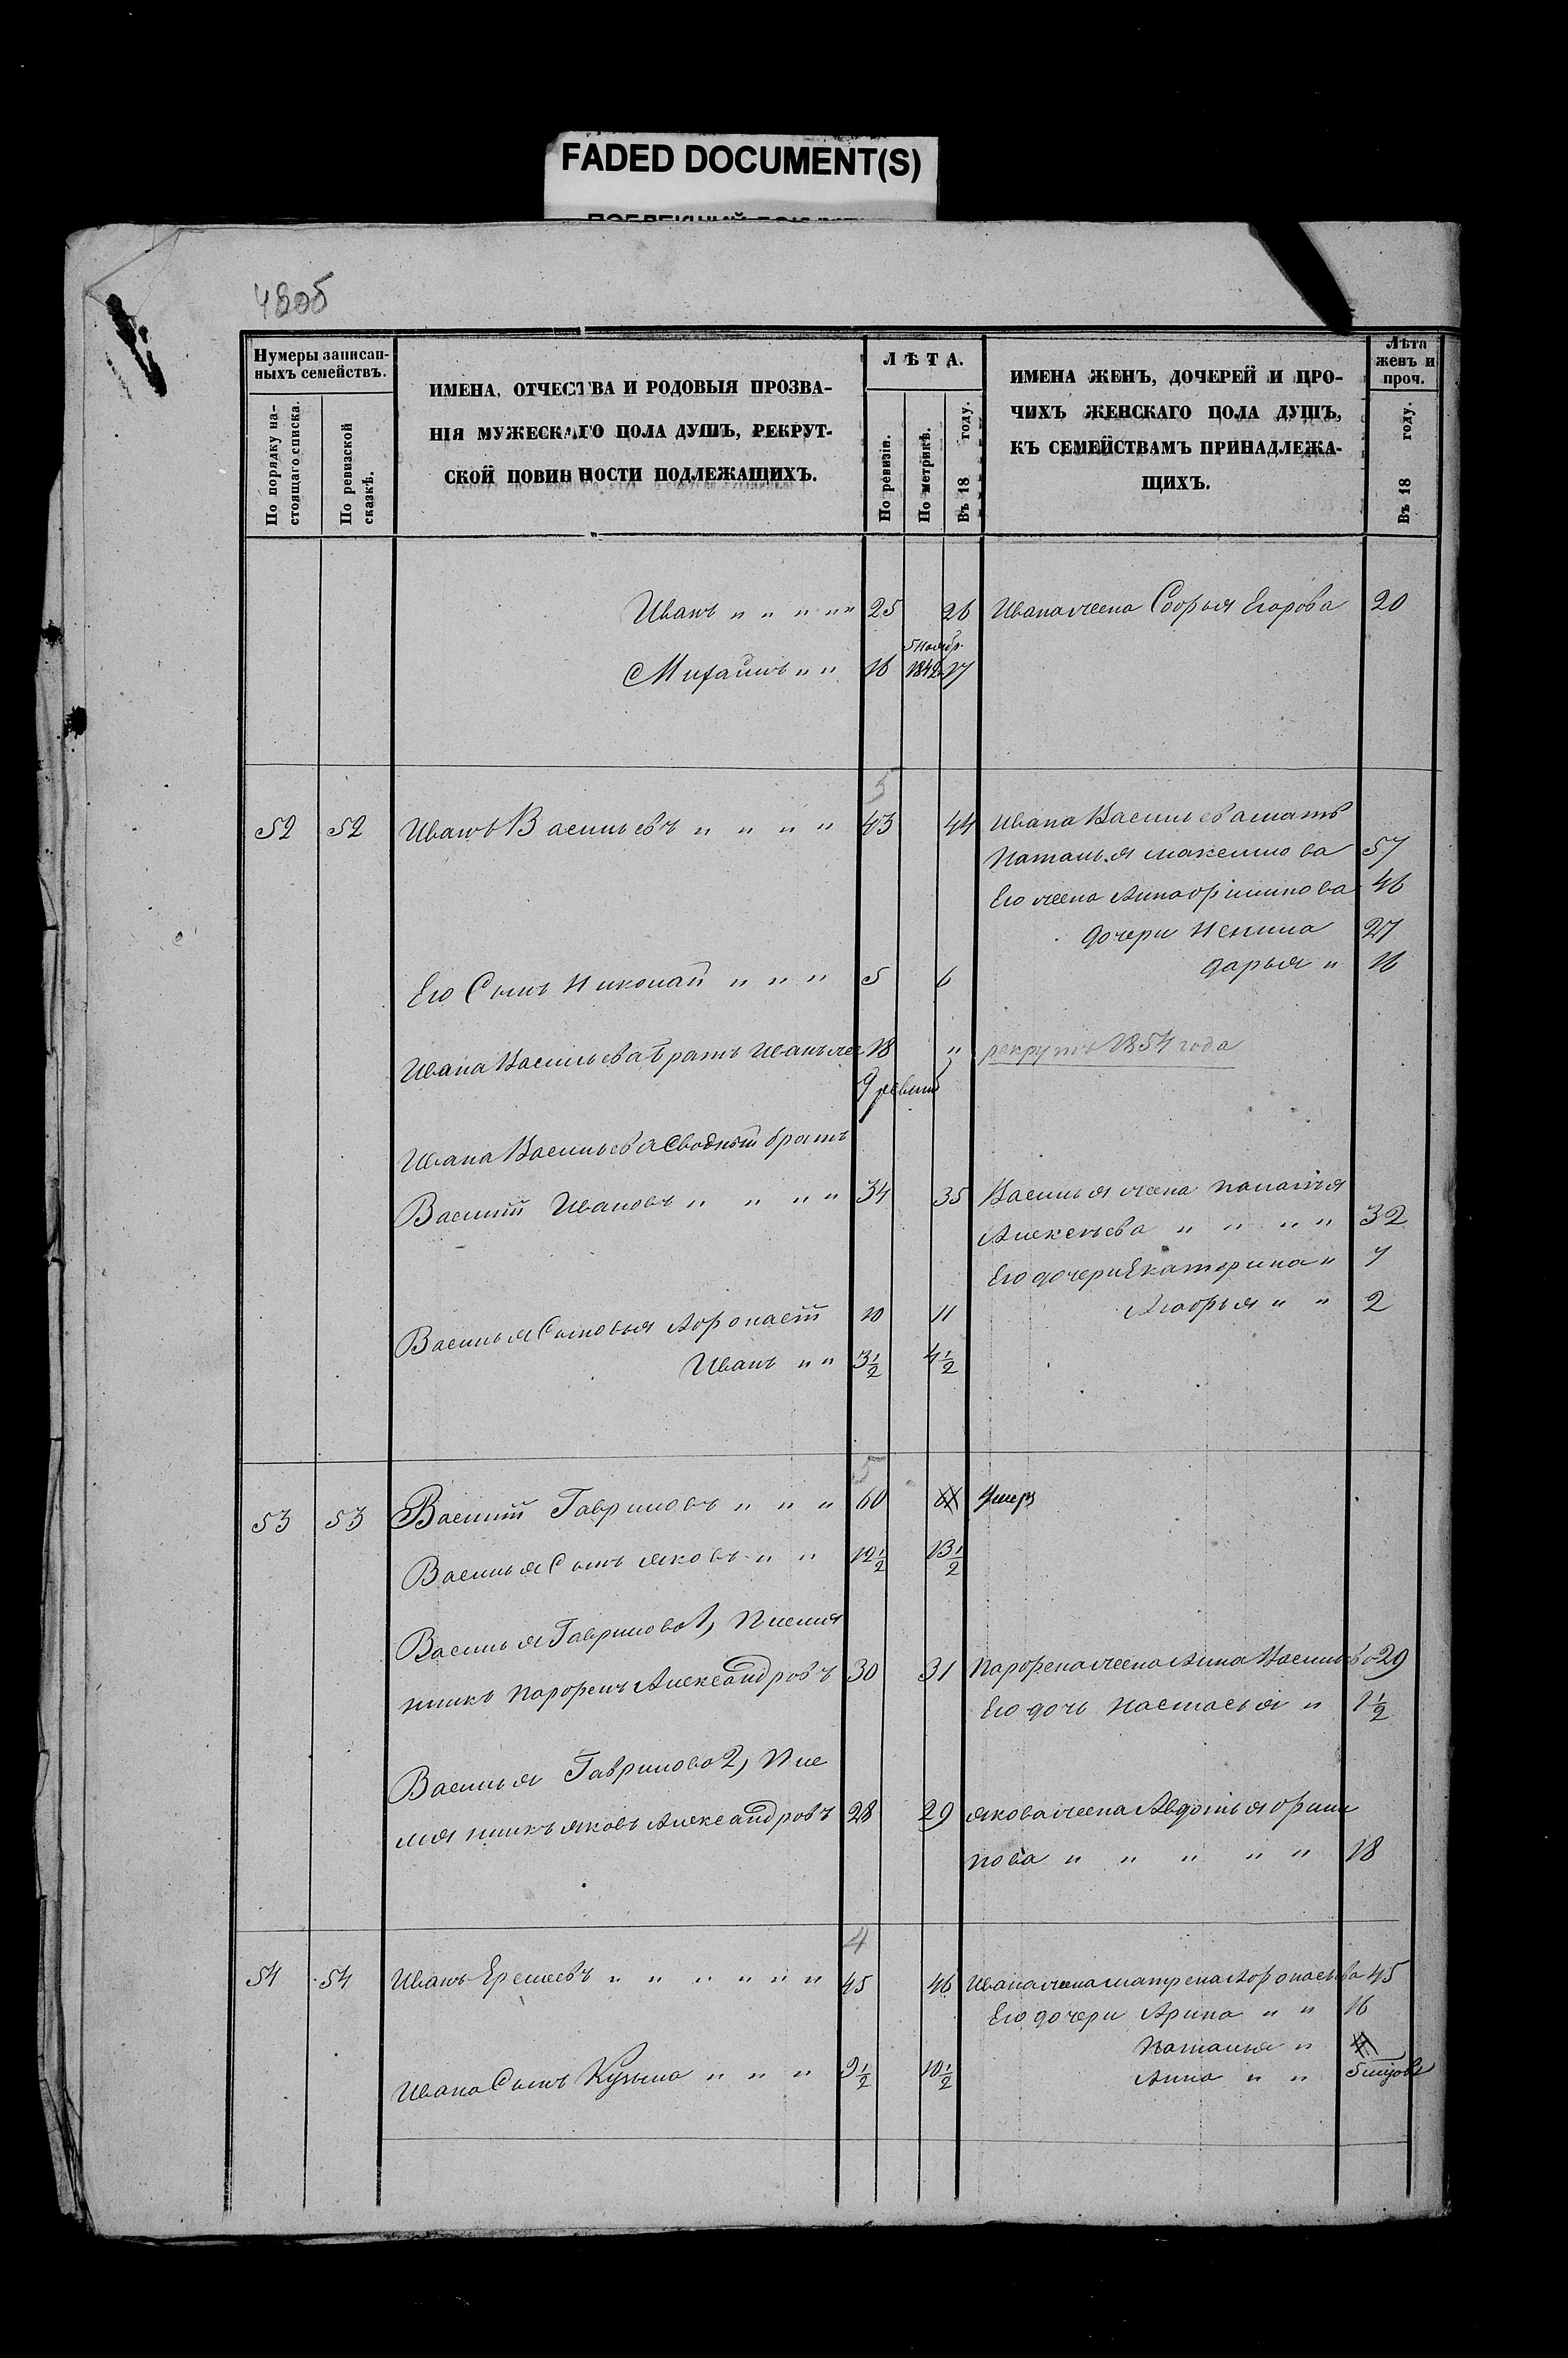 FADED DOCUMENT(S)
48об
Нумеры записан-
ныхъ семействъ.
По порядку на-
стоящаго списка.
По ревизской
сказкѣ.
ИМЕНА, ОТЧЕСТВА И РОДОВЫЯ ПРОЗВА-
НІЯ МУЖЕСКАГО ПОЛА ДУШЪ, РЕКРУТ-
СКОЙ ПОВИННОСТИ ПОДЛЕЖАЩИХЪ.
ЛѢТА.
По ревизіи.
По метрикѣ.
Въ 18 году.
ИМЕНА ЖЕНЪ, ДОЧЕРЕЙ И ПРО-
ЧИХЪ ЖЕНСКАГО ПОЛА ДУШЪ,
КЪ СЕМЕЙСТВАМЪ ПРИНАДЛЕЖА-
ЩИХЪ.
Лѣта
женъ и
проч.
Въ 18 году.
Иванъ " " " " " 25 26 Ивана жена Софья Егорова 20
5 Ноябр.
Михаилъ " " 16 1842 17
5
52 52 Иванъ Васильевъ " " " " 43 44 Ивана Васильева мать
Наталья Максимова 57
Его жена Анна Филипова 46
дочери Ненила 27
Дарья " 16
Его Сынъ Николай " " " 5 6
Ивана Васильева братъ Иванъ же 18 " рекрутъ 1854 года
9 ревизіи
Ивана Васильева Сводный братъ
Василій Ивановъ " " " " 34 35 Василья жена Палагія
Алексеева " " " " 32
Его дочери Екатерина " 7
Агафья " " 2
Василья Сыновья Афонасій 10 11
Иванъ " " 3½ 4½
5
53 53 Василій Гавриловъ " " " 60 Умеръ
Василья Сынъ Яковъ " " 12½ 13½
Василья Гаврилова 1, Племя
нникъ Парфенъ Александровъ 30 31 Парфена жена Анна Васильева 29
Его дочь Настасья " 1½
Василья Гаврилова 2, Пле
мянникъ Яковъ Александровъ 28 29 Якова жена Авдотья Фили
пова " " " " " 18
4
54 54 Иванъ Еремеевъ " " " " " " 45 46 Ивана жена Матрена Афонасьева 45
Его дочери Арина " " 16
Наталья "
Ивана Сынъ Кузьма " " " 9½ 10½ Анна " "